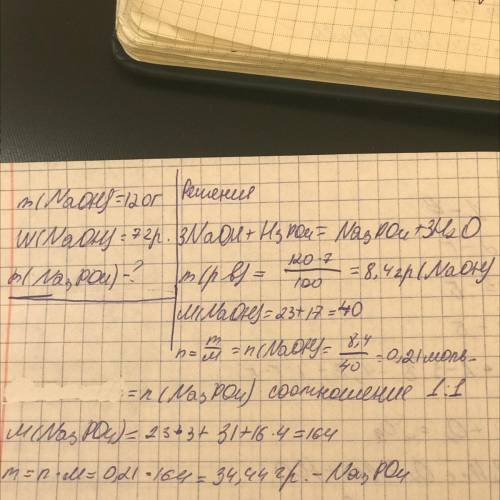 m(NaOH)=120г
W(NaOH)=7гр.
m(Na3PO4)-?
Решения
3NaOH+H3PO4=Na3PO4+3H2O
m(р.в)=120·7/100=8,4гр(NaOH)
M(NaOH)=23+17=40
n=m/M=n(NaOH)=8,4/40=0,21моль.
=n(Na3PO4) соотношение 1:1
M(Na3PO4)=23·3+31+16·4=164
m=n·M=0,21·164=34,44гр.-Na3PO4